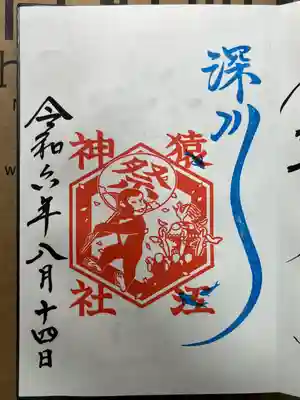 深川
猿江
神社
祭
令和六年八月十四日